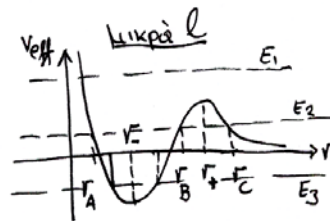 μικρά l
Veff
E₁
E₂
r₋
r
r_A
r_B
r₊
r_C
E₃